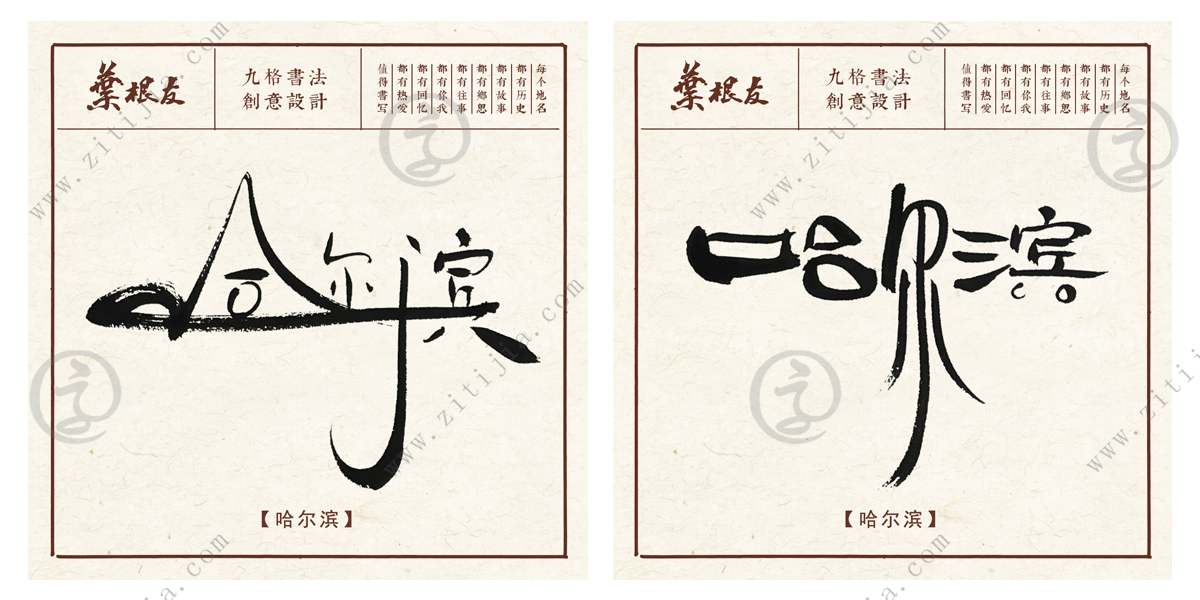 葉根友
九格書法
創意設計
每个地名
都有历史
都有故事
都有鄉愁
都有往事
都有你我
都有回忆
都有热愛
值得書写
哈尔滨
【哈尔滨】
葉根友
九格書法
創意設計
每个地名
都有历史
都有故事
都有鄉愁
都有往事
都有你我
都有回忆
都有热愛
值得書写
哈尔滨
【哈尔滨】
www.zitijia.com
www.zitijia.com
www.zitijia.com
www.zitijia.com